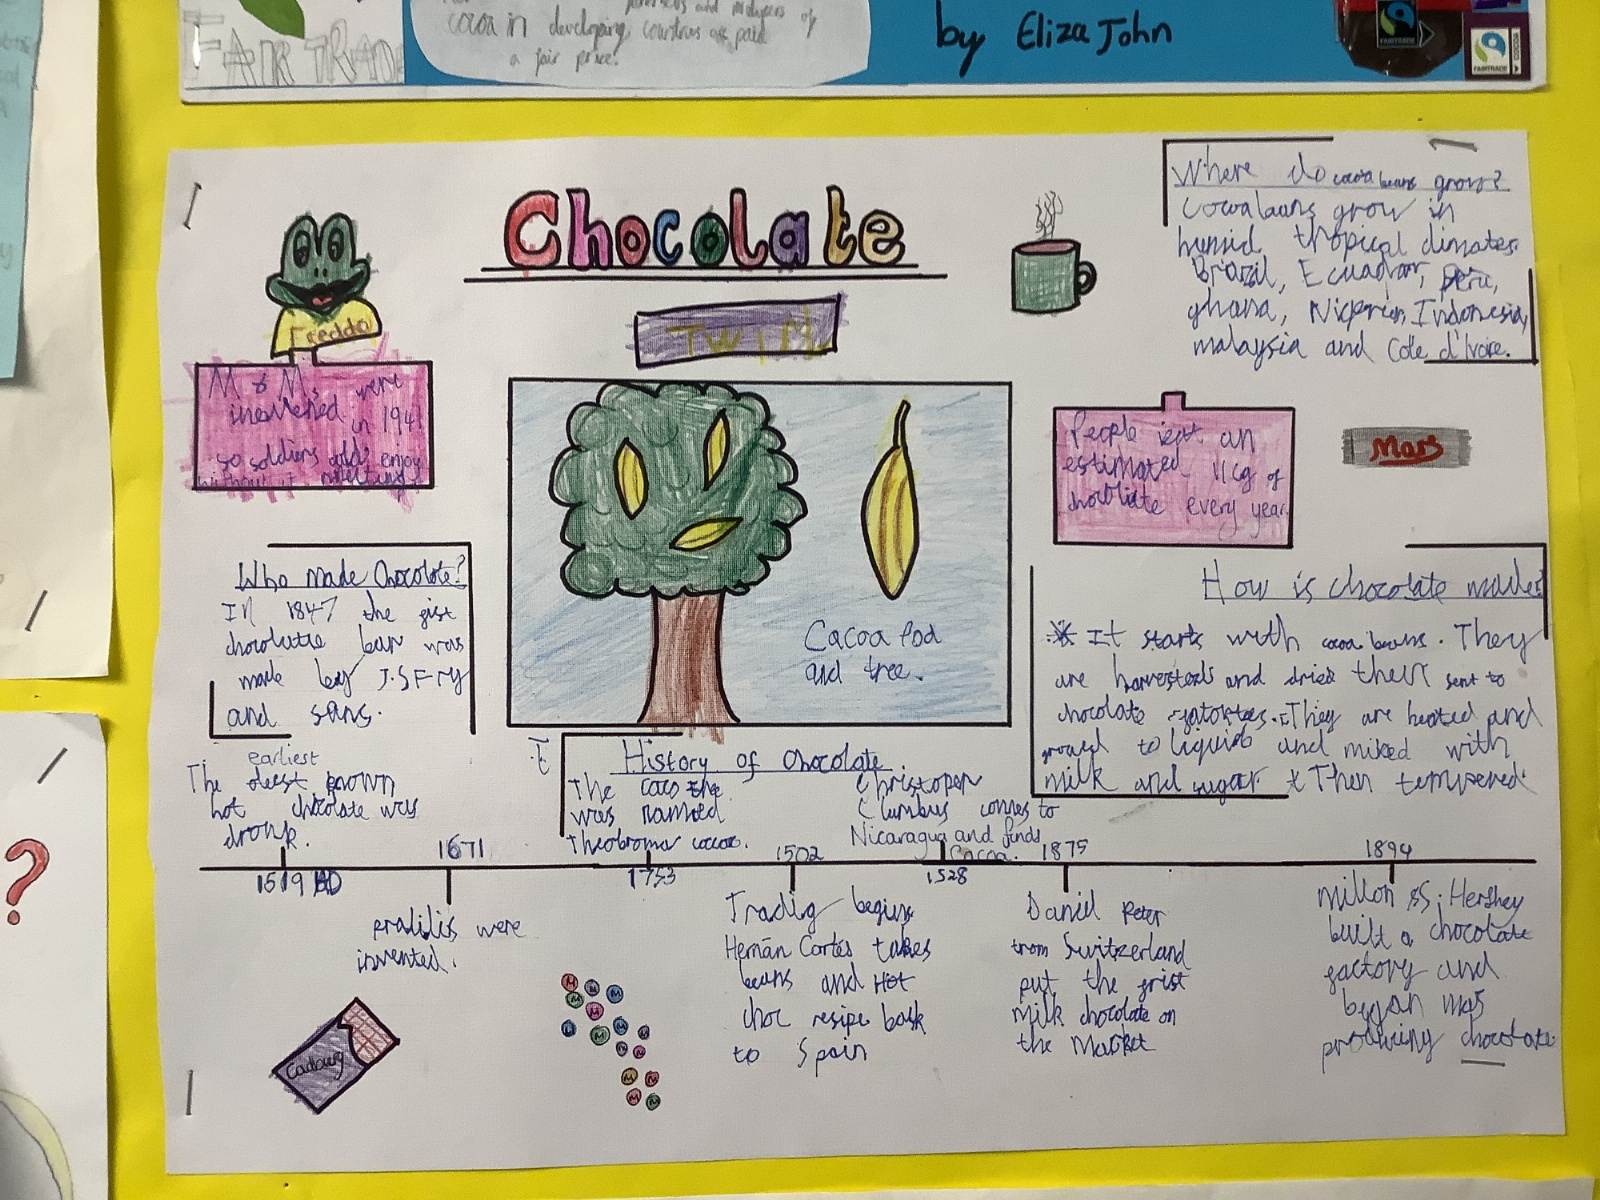 FAIR TRADE
cocoa in developing countries are paid
a fair price!
by Eliza John
FAIRTRADE
FAIRTRADE
COCOA
Chocolate
TWIX
Freddo
M & Ms were
invented in 1941
so soldiers could enjoy
without it melting
Where do cocoa beans grow?
Cocoabeans grow in
humid tropical climates.
Brazil, Ecuador, Peru,
ghana, Nigeria, Indonesia,
malaysia and Cote d'Ivoire.
People eat an
estimated 11kg of
chocolate every year.
Mars
Who made Chocolate?
In 1847 the first
chocolate bar was
made by J.S Fry
and sons.
Cacoa Pod
and tree.
How is chocolate made?
It starts with cocoa beans. They
are harvested and dried then sent to
chocolate They are heated and
ground to liquid and mixed with
milk and sugar Then tempered.
earliest
The known
hot chocolate was
dronk.
1519 AD
1671
pralilis were
invented.
History of Chocolate
The coco
was namned
Theobroma cocoa.
1753
Christoper
Clumbus comes to
Nicaragua and finds
Cocoa.
1502
1528
Trading begins
Hernãn Cortés takes
beans and Hot
choc resipe back
to Spain
1875
Daniel Peter
from Switzerland
put the first
Milk chocolate on
the Market
1894
Milton S. Hershey
built a chocolate
factory and
began mas
producing chocolate
Cadbury
M
M
M
M
M
M
M
M
M
M
M
M
M
?